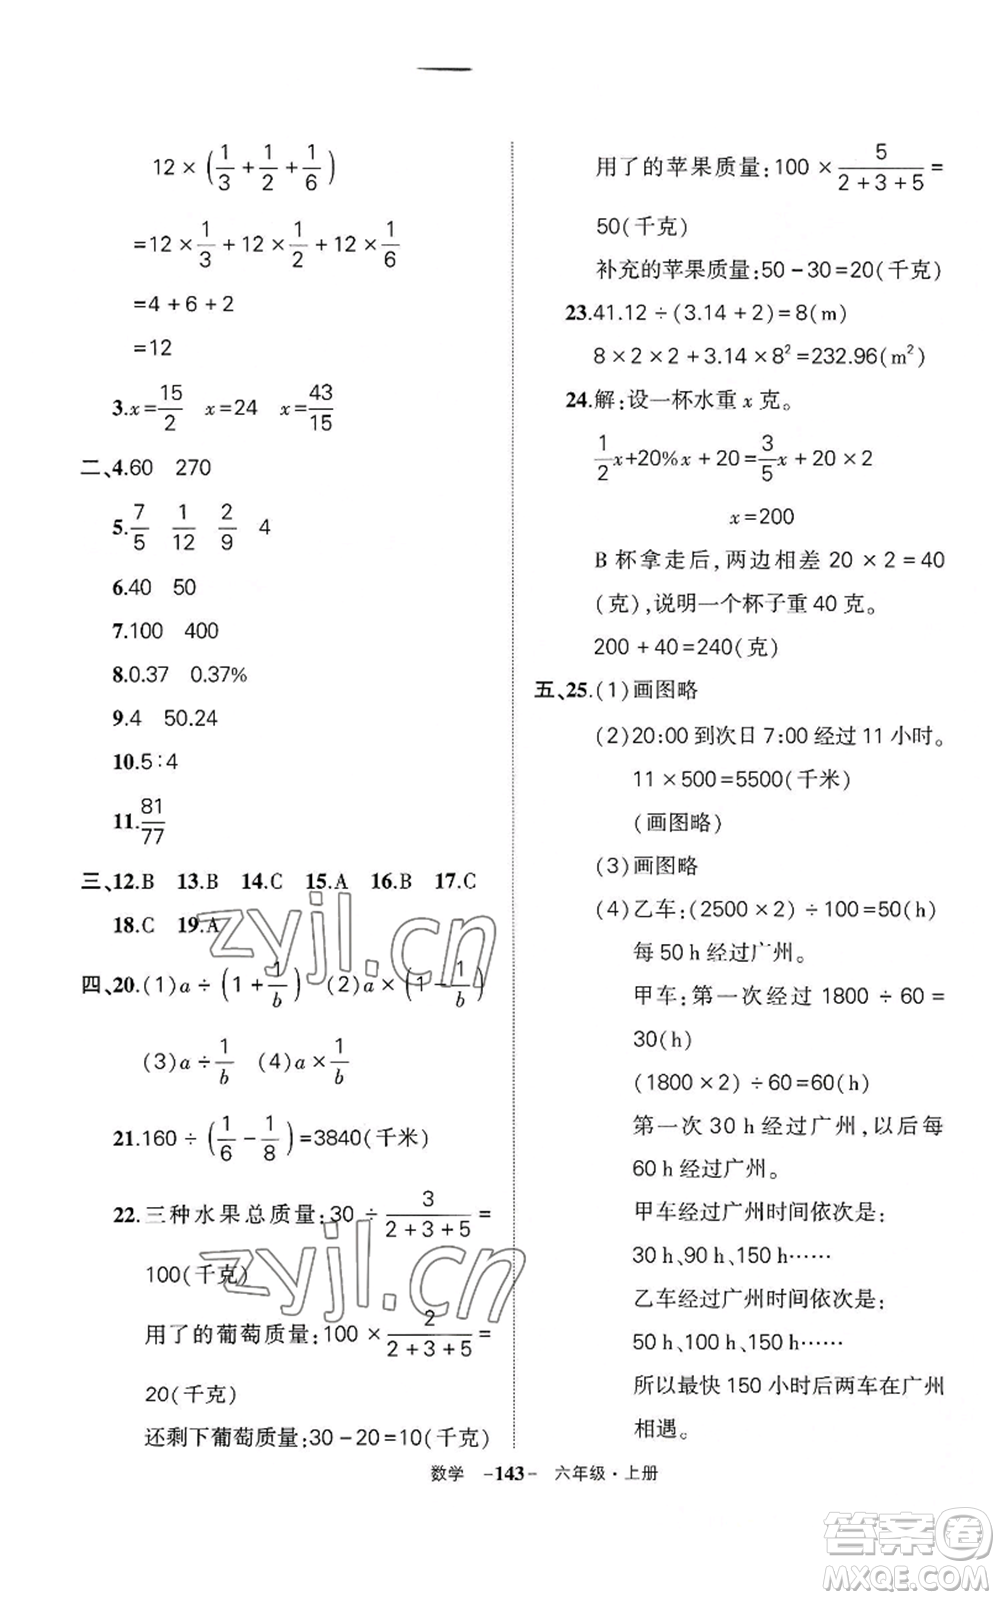 12 × (1/3 + 1/2 + 1/6)
=12 × 1/3 + 12 × 1/2 + 12 × 1/6
=4 + 6 + 2
=12
3.x=15/2 x=24 x=43/15
二、4.60 270
5.7/5 1/12 2/9 4
6.40 50
7.100 400
8.0.37 0.37%
9.4 50.24
10.5∶4
11.81/77
三、12.B 13.B 14.C 15.A 16.B 17.C
18.C 19.A
四、20.(1)a ÷ (1 + 1/b) (2)a × (1 − 1/b)
(3)a ÷ 1/b (4)a × 1/b
21.160 ÷ (1/6 − 1/8)=3840(千米)
22.三种水果总质量:30 ÷ 3/(2+3+5) =
100(千克)
用了的葡萄质量:100 × 2/(2+3+5) =
20(千克)
还剩下葡萄质量:30 − 20=10(千克)
用了的苹果质量:100 × 5/(2+3+5) =
50(千克)
补充的苹果质量:50 − 30=20(千克)
23.41.12 ÷ (3.14 + 2)=8(m)
8 × 2 × 2 + 3.14 × 8²=232.96(m²)
24.解:设一杯水重 x 克。
1/2x+20%x + 20=3/5x + 20 × 2
x=200
B 杯拿走后,两边相差 20 × 2=40
(克),说明一个杯子重 40 克。
200 + 40=240(克)
五、25.(1)画图略
(2)20:00 到次日 7:00 经过 11 小时。
11 × 500=5500(千米)
(画图略)
(3)画图略
(4)乙车:(2500 × 2) ÷ 100=50(h)
每 50 h 经过广州。
甲车:第一次经过 1800 ÷ 60 =
30(h)
(1800 × 2) ÷ 60=60(h)
第一次 30 h 经过广州,以后每
60 h 经过广州。
甲车经过广州时间依次是:
30 h、90 h、150 h……
乙车经过广州时间依次是:
50 h、100 h、150 h……
所以最快 150 小时后两车在广州
相遇。
数学 -143- 六年级·上册
zyjl.cn
zyjl.cn
答案卷
MXQE.COM